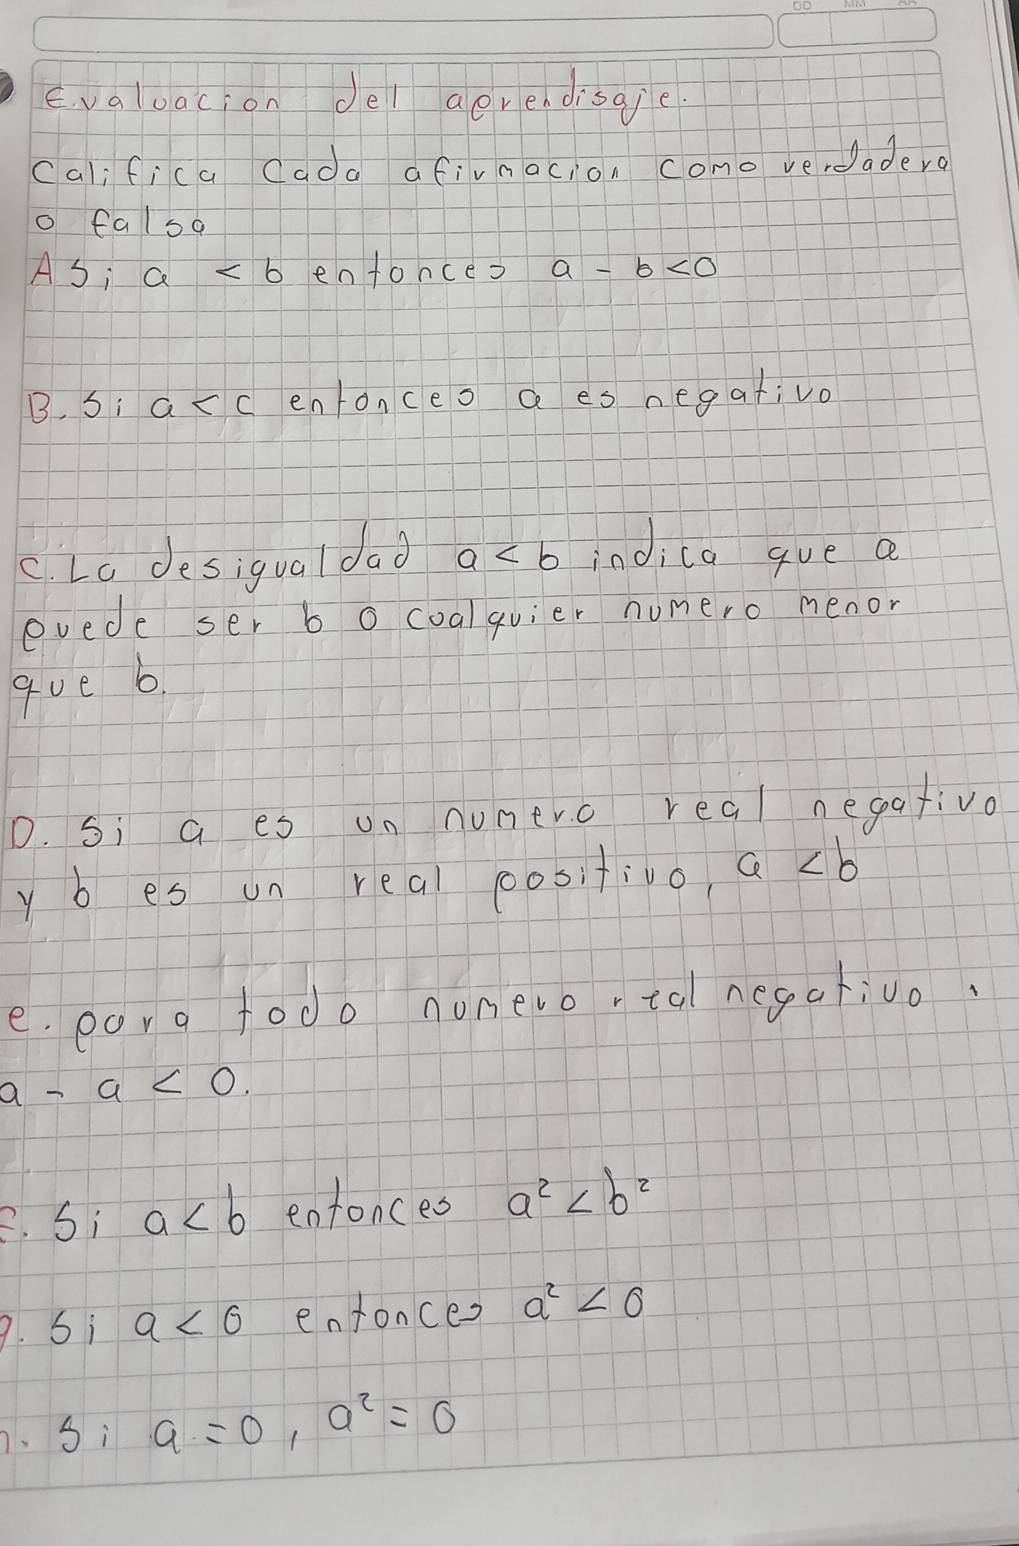 DD MM AA
Evaluacion del aprendisaje.
Califica Cada afirmacion como verdadera
o falsa
A Si a < b entonces a - b < 0
B. Si a < c entonces a es negativo
C. La desigualdad a < b indica que a
puede ser b o coalquier numero menor
que b.
D. Si a es un numero real negativo
y b es un real positivo, a < b
e. para todo numero real negativo.
a - a < 0.
F. Si a < b entonces a² < b²
g. Si a < 0 entonces a² < 0
h. Si a = 0, a² = 0